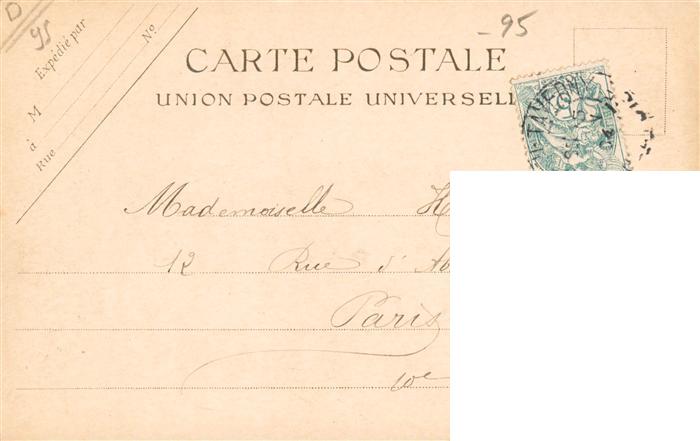 D
95
-95
Expédié par
M
à
Rue
Nº
CARTE POSTALE
UNION POSTALE UNIVERSELL
Mademoiselle
12 Rue d'
Paris
10e